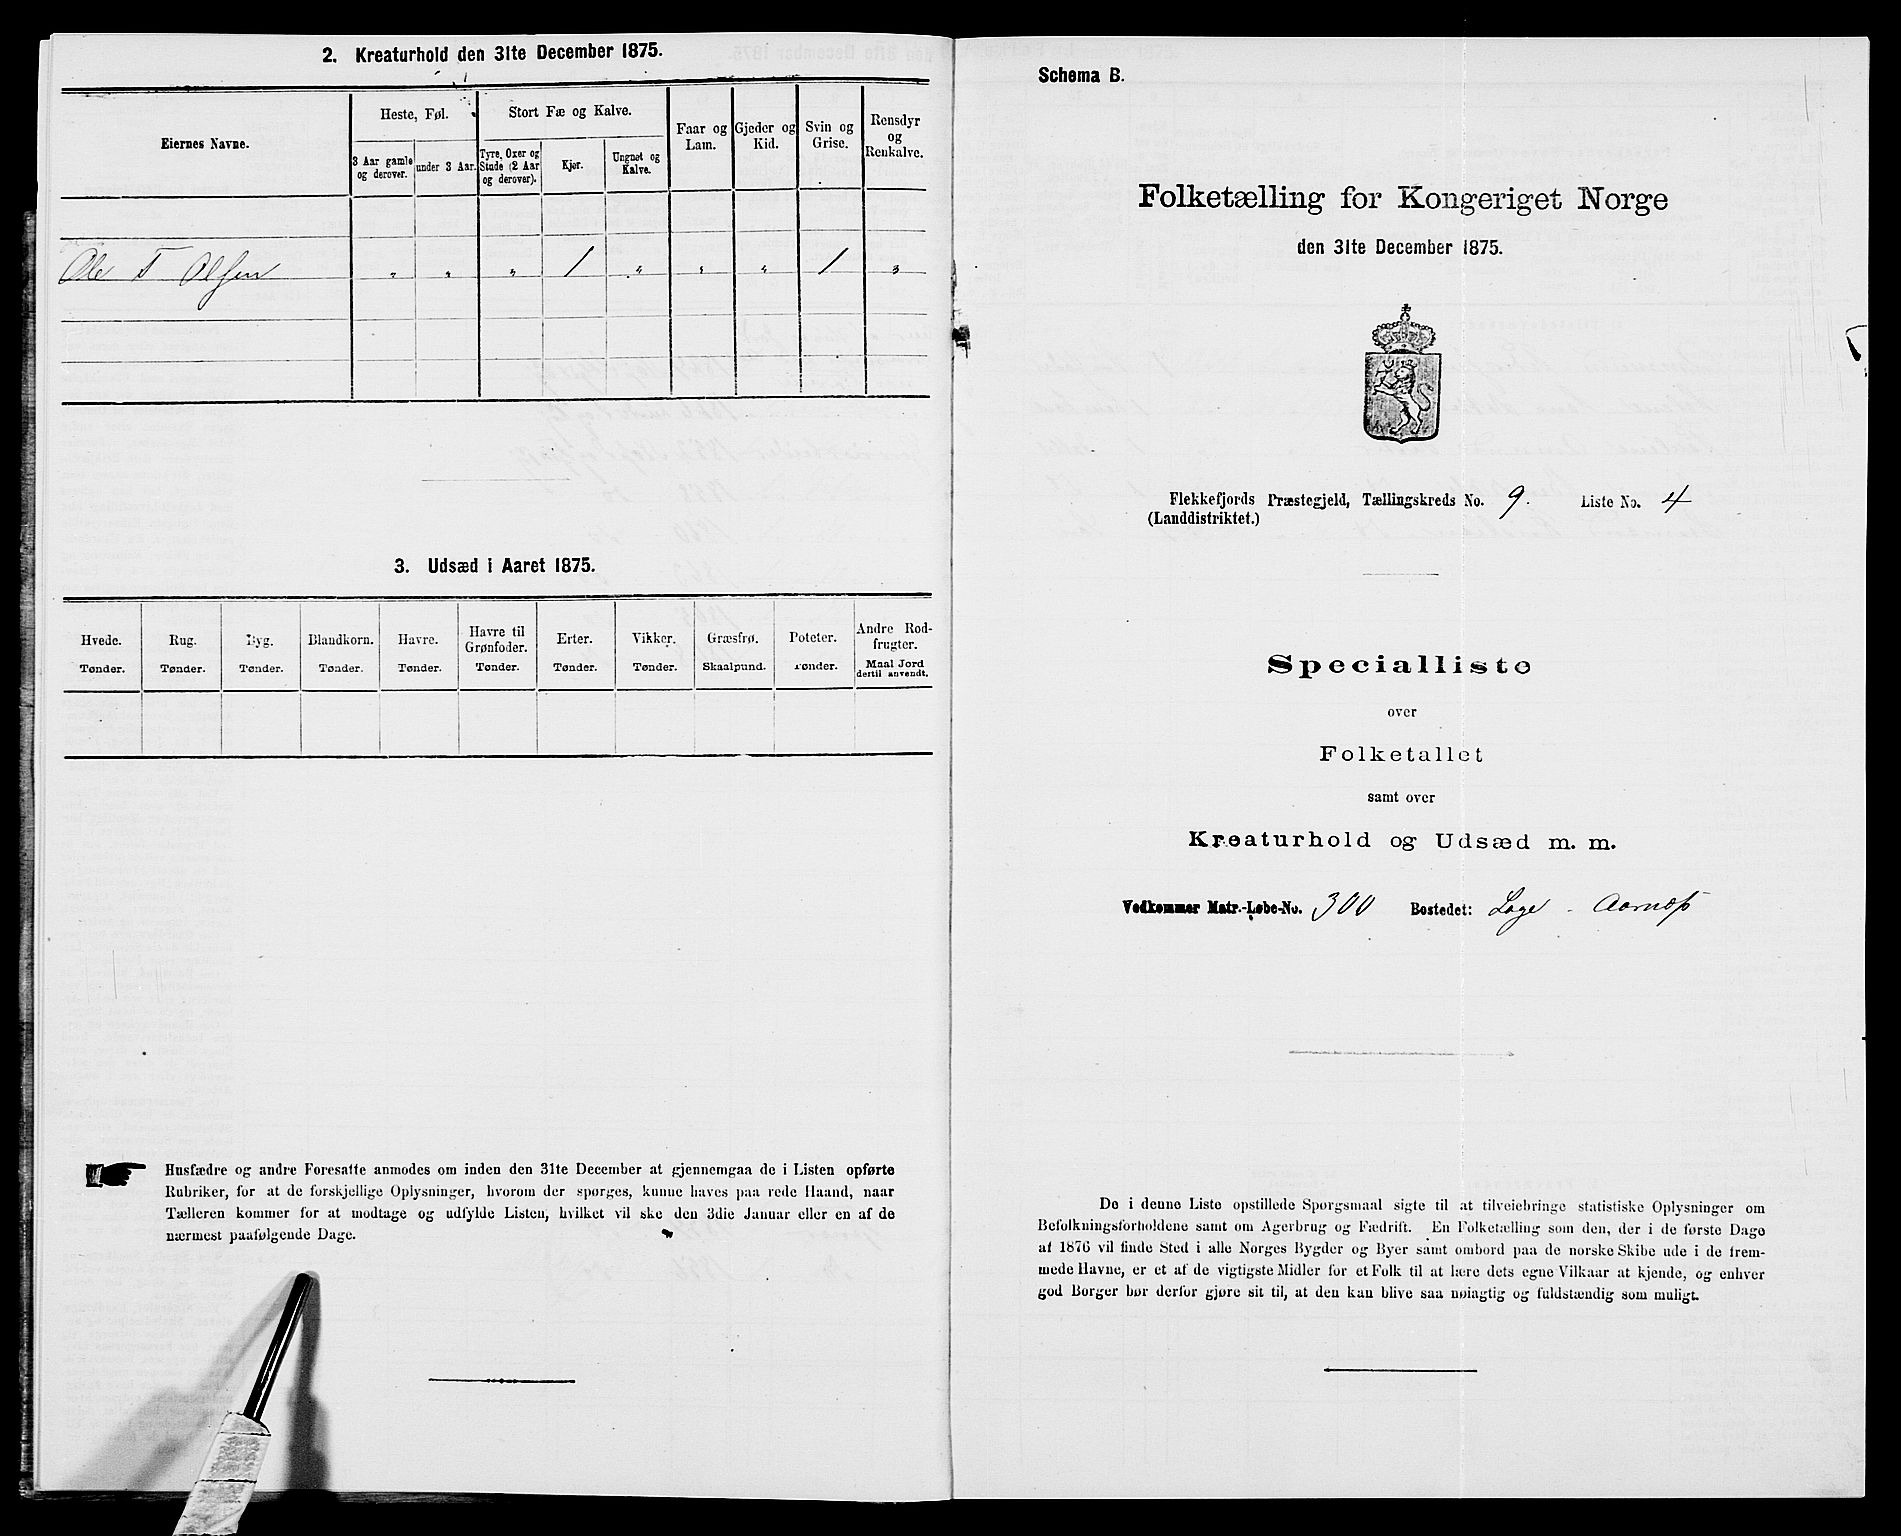 2. Kreaturhold den 31te December 1875.
Eiernes Navne.
Heste, Føl.
Stort Fæ og Kalve.
Faar og Lam.
Gjeder og Kid.
Svin og Grise.
Rensdyr og Renkalve.
3 Aar gamle og derover.
under 3 Aar.
Tyre, Oxer og Stude (2 Aar og derover).
Kjør.
Ungnøt og Kalve.
Ole T Olsen " " " 1 " " " 1 "
3. Udsæd i Aaret 1875.
Hvede. Rug. Byg. Blandkorn. Havre. Havre til Grønfoder. Erter. Vikker. Græsfrø. Poteter. Andre Rodfrugter.
Tønder. Tønder. Tønder. Tønder. Tønder. Tønder. Tønder. Tønder. Skaalpund. Tønder. Maal Jord dertil anvendt.
Husfædre og andre Foresatte anmodes om inden den 31te December at gjennemgaa de i Listen opførte
Rubriker, for at de forskjellige Oplysninger, hvorom der spørges, kunne haves paa rede Haand, naar
Tælleren kommer for at modtage og udfylde Listen, hvilket vil ske den 3die Januar eller en af de
nærmest paafølgende Dage.
Schema B.
Folketælling for Kongeriget Norge
den 31te December 1875.
Flekkefjords Præstegjeld, Tællingskreds No. 9. Liste No. 4
(Landdistriktet.)
Specialliste
over
Folketallet
samt over
Kreaturhold og Udsæd m. m.
Vedkommer Matr.-Løbe-No. 300 Bostedet: Loge - Aarnæs
De i denne Liste opstillede Spørgsmaal sigte til at tilveiebringe statistiske Oplysninger om
Befolkningsforholdene samt om Agerbrug og Fædrift. En Folketælling som den, der i de første Dage
af 1876 vil finde Sted i alle Norges Bygder og Byer samt ombord paa de norske Skibe ude i de frem-
mede Havne, er et af de vigtigste Midler for et Folk til at lære dets egne Vilkaar at kjende, og enhver
god Borger bør derfor gjøre sit til, at den kan blive saa nøiagtig og fuldstændig som muligt.